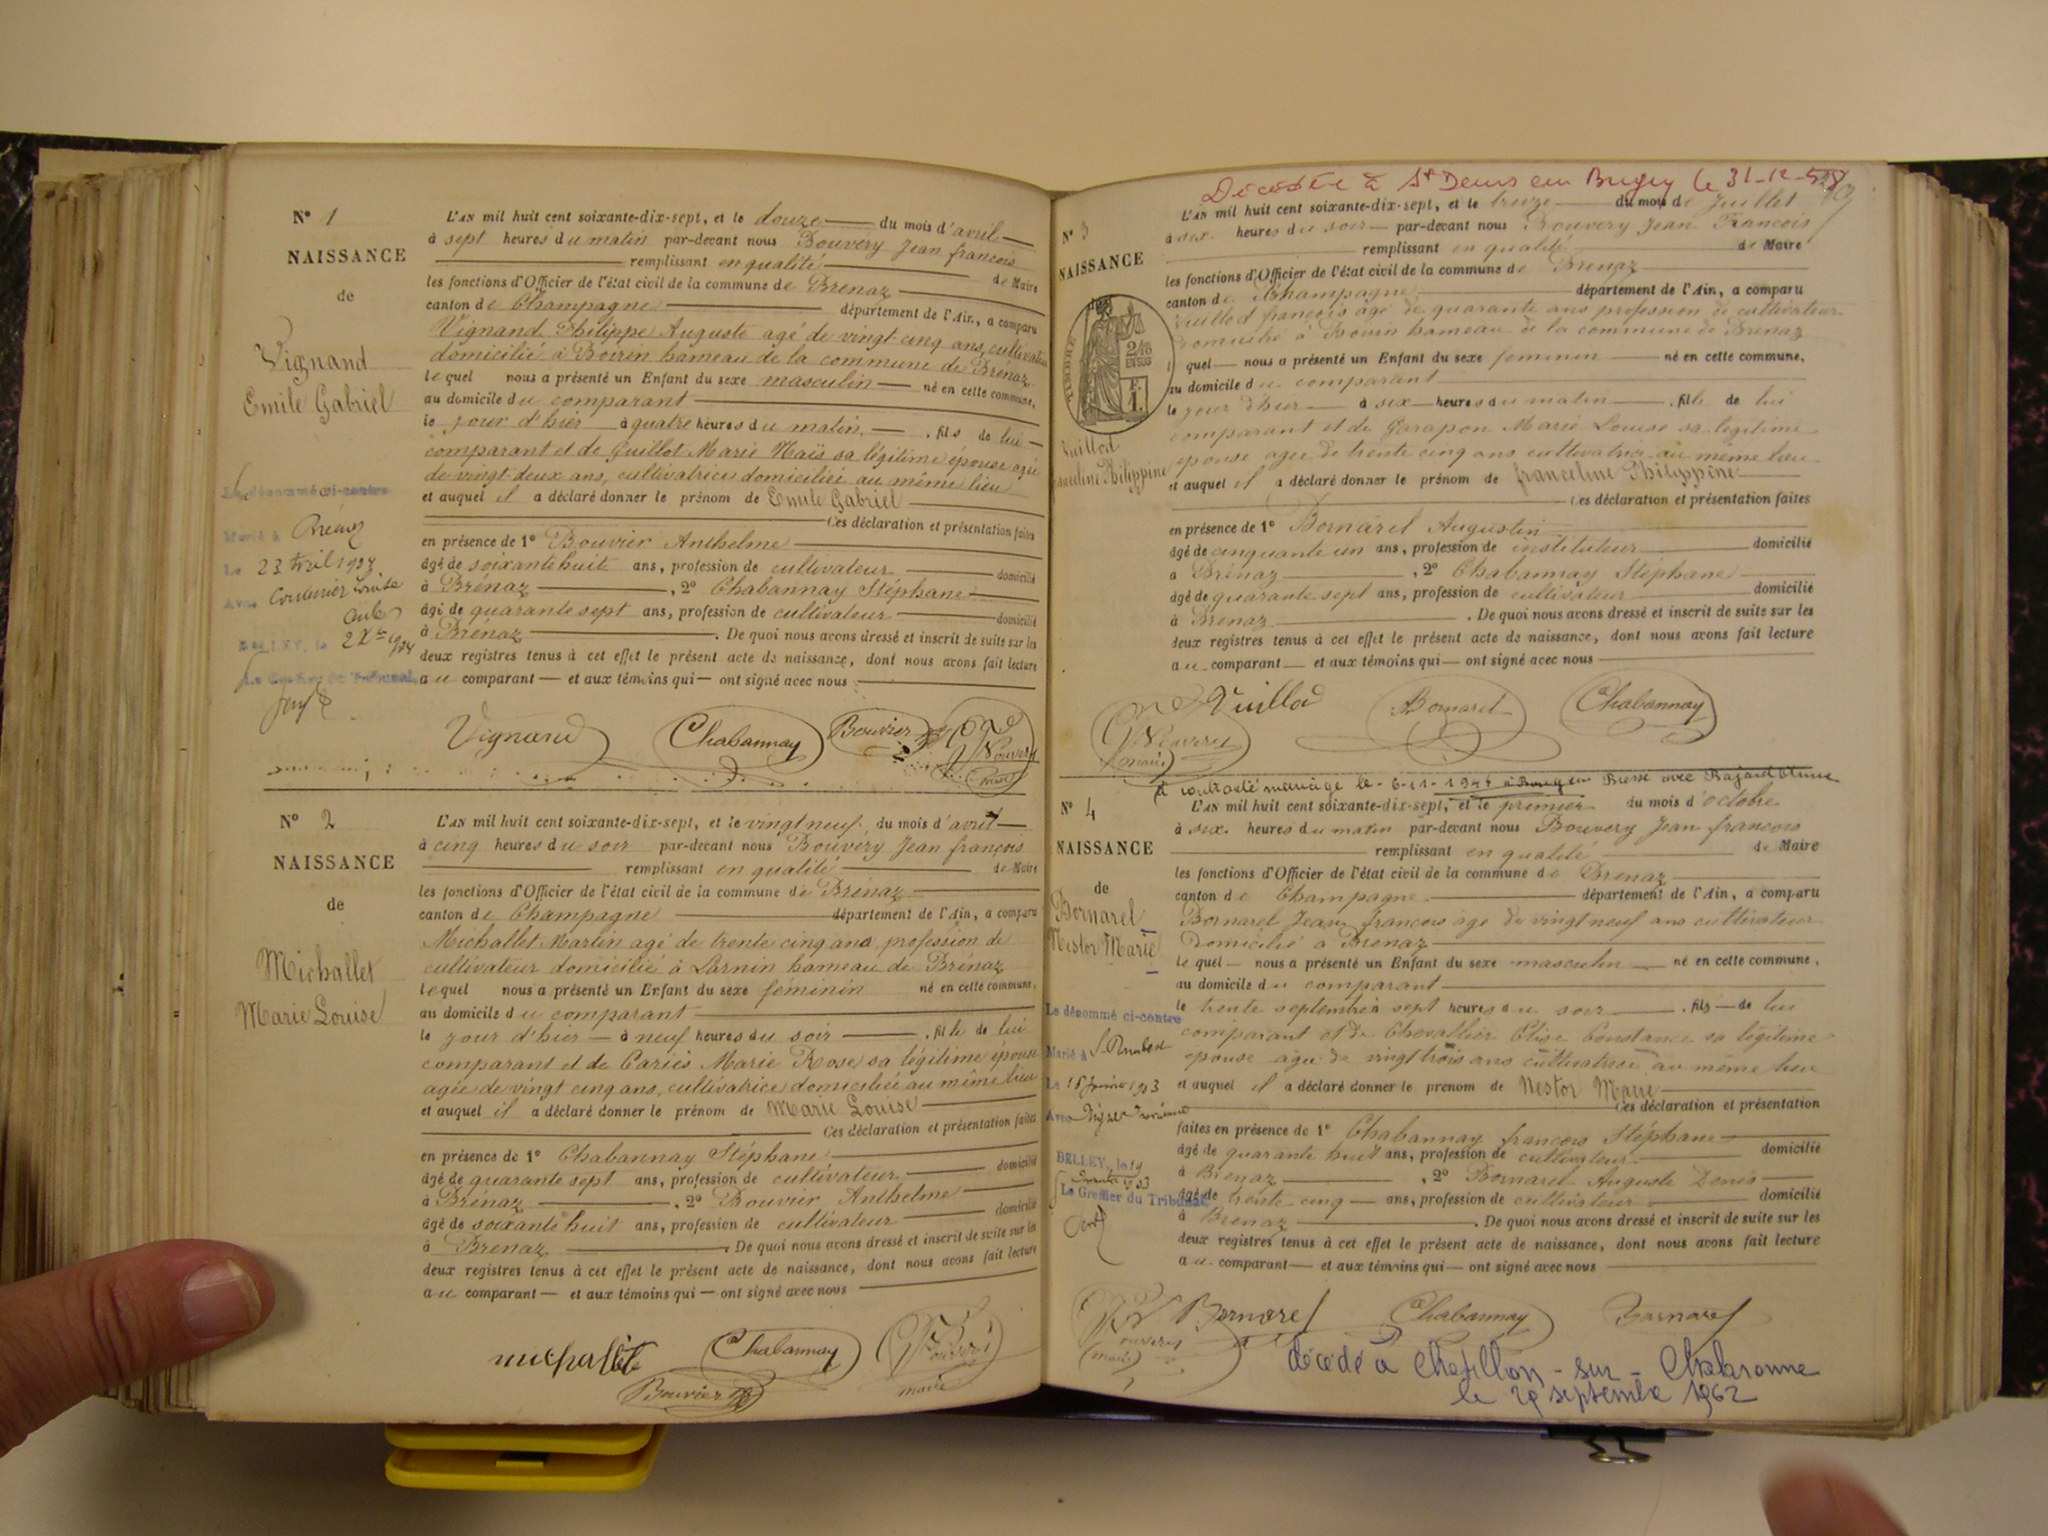 N° 1
NAISSANCE
de
Vignand
Emile Gabriel
Le dénommé ci-contre
Marié à
Le 23 Avril
Avec
BELLEY, le
Le Greffier du Tribunal,
L'AN mil huit cent soixante-dix-sept, et le douze du mois d'avril
à sept heures du matin par-devant nous Bouvery Jean françois
remplissant en qualité de Maire
les fonctions d'Officier de l'état civil de la commune de Brénaz
canton de Champagne département de l'Ain, a comparu
Vignand Philippe Auguste agé de vingt cinq ans, cultivateur
domicilié à Boirin hameau de la commune de Brénaz
lequel nous a présenté un Enfant du sexe masculin né en cette commune,
au domicile du comparant
le jour d'hier à quatre heures du matin, fils de lui
comparant et de Guillot Marie Naïs sa légitime épouse agée
de vingt deux ans, cultivatrice domiciliée au même lieu
et auquel il a déclaré donner le prénom de Emile Gabriel
Ces déclaration et présentation faites
en présence de 1° Bouvier Anthelme
âgé de soixante huit ans, profession de cultivateur domicilié
à Brénaz, 2° Chabannay Stéphane
âgé de quarante sept ans, profession de cultivateur domicilié
à Brénaz. De quoi nous avons dressé et inscrit de suite sur les
deux registres tenus à cet effet le présent acte de naissance, dont nous avons fait lecture
au comparant et aux témoins qui ont signé avec nous
Vignand Chabannay Bouvier Bouvery
maire
N° 2
NAISSANCE
de
Michallet
Marie Louise
L'AN mil huit cent soixante-dix-sept, et le vingt neuf du mois d'avril
à cinq heures du soir par-devant nous Bouvery Jean françois
remplissant en qualité de Maire
les fonctions d'Officier de l'état civil de la commune de Brénaz
canton de Champagne département de l'Ain, a comparu
Michallet Martin agé de trente cinq ans, profession de
cultivateur domicilié à Larnin hameau de Brénaz
lequel nous a présenté un Enfant du sexe féminin né en cette commune,
au domicile du comparant
le jour d'hier à neuf heures du soir, fille de lui
comparant et de Cariès Marie Rose sa légitime épouse
agée de vingt cinq ans, cultivatrice domiciliée au même lieu
et auquel il a déclaré donner le prénom de Marie Louise
Ces déclaration et présentation faites
en présence de 1° Chabannay Stéphane
âgé de quarante sept ans, profession de cultivateur domicilié
à Brénaz, 2° Bouvier Anthelme
âgé de soixante huit ans, profession de cultivateur domicilié
à Brénaz. De quoi nous avons dressé et inscrit de suite sur les
deux registres tenus à cet effet le présent acte de naissance, dont nous avons fait lecture
au comparant et aux témoins qui ont signé avec nous
michallet Chabannay Bouvery
Bouvier maire
Décédée à St Denis en Bugey le 31-12-58
N° 3
NAISSANCE
TIMBRE
2/10
EN SUS
Vuillod
franceline Philippine
L'AN mil huit cent soixante-dix-sept, et le treize du mois de Juillet
à six heures du soir par-devant nous Bouvery Jean François
remplissant en qualité de Maire
les fonctions d'Officier de l'état civil de la commune de Brénaz
canton de Champagne département de l'Ain, a comparu
Vuillod françois agé de quarante ans profession de cultivateur
domicilié à Boirin hameau de la commune de Brénaz
lequel nous a présenté un Enfant du sexe féminin né en cette commune,
au domicile du comparant
le jour d'hier à six heures du matin, fille de lui
comparant et de Garapon Marie Louise sa légitime
épouse agée de trente cinq ans cultivatrice au même lieu
et auquel il a déclaré donner le prénom de franceline Philippine
Ces déclaration et présentation faites
en présence de 1° Bornarel Augustin
âgé de cinquante un ans, profession de instituteur domicilié
à Brénaz, 2° Chabannay Stéphane
âgé de quarante sept ans, profession de cultivateur domicilié
à Brénaz. De quoi nous avons dressé et inscrit de suite sur les
deux registres tenus à cet effet le présent acte de naissance, dont nous avons fait lecture
au comparant et aux témoins qui ont signé avec nous
Vuillod Bornarel Chabannay
Bouvery
maire
A contracté mariage le 6-11-1945 à Bourg en Bresse avec
N° 4
NAISSANCE
de
Bornarel
Nestor Marie
Le dénommé ci-contre
Marié à St Rambert
Le
Avec
BELLEY, le 19
Le Greffier du Tribunal
L'AN mil huit cent soixante-dix-sept, et le premier du mois d'octobre
à six heures du matin par-devant nous Bouvery Jean françois
remplissant en qualité de Maire
les fonctions d'Officier de l'état civil de la commune de Brénaz
canton de Champagne département de l'Ain, a comparu
Bornarel Jean françois âgé de vingt neuf ans cultivateur
Domicilié à Brénaz
lequel nous a présenté un Enfant du sexe masculin né en cette commune,
au domicile du comparant
le trente septembre à sept heures du soir, fils de lui
comparant et de Chevallier Elise Constance sa légitime
épouse agée de vingt trois ans cultivatrice au même lieu
et auquel il a déclaré donner le prénom de Nestor Marie
Ces déclaration et présentation
faites en présence de 1° Chabannay françois Stéphane
âgé de quarante huit ans, profession de cultivateur domicilié
à Brénaz, 2° Bornarel Auguste Denis
âgé de trente cinq ans, profession de cultivateur domicilié
à Brénaz. De quoi nous avons dressé et inscrit de suite sur les
deux registres tenus à cet effet le présent acte de naissance, dont nous avons fait lecture
au comparant et aux témoins qui ont signé avec nous
Bouvery Bornarel Chabannay Bornarel
maire
décédé à Chatillon-sur-Chalaronne
le 29 septembre 1962